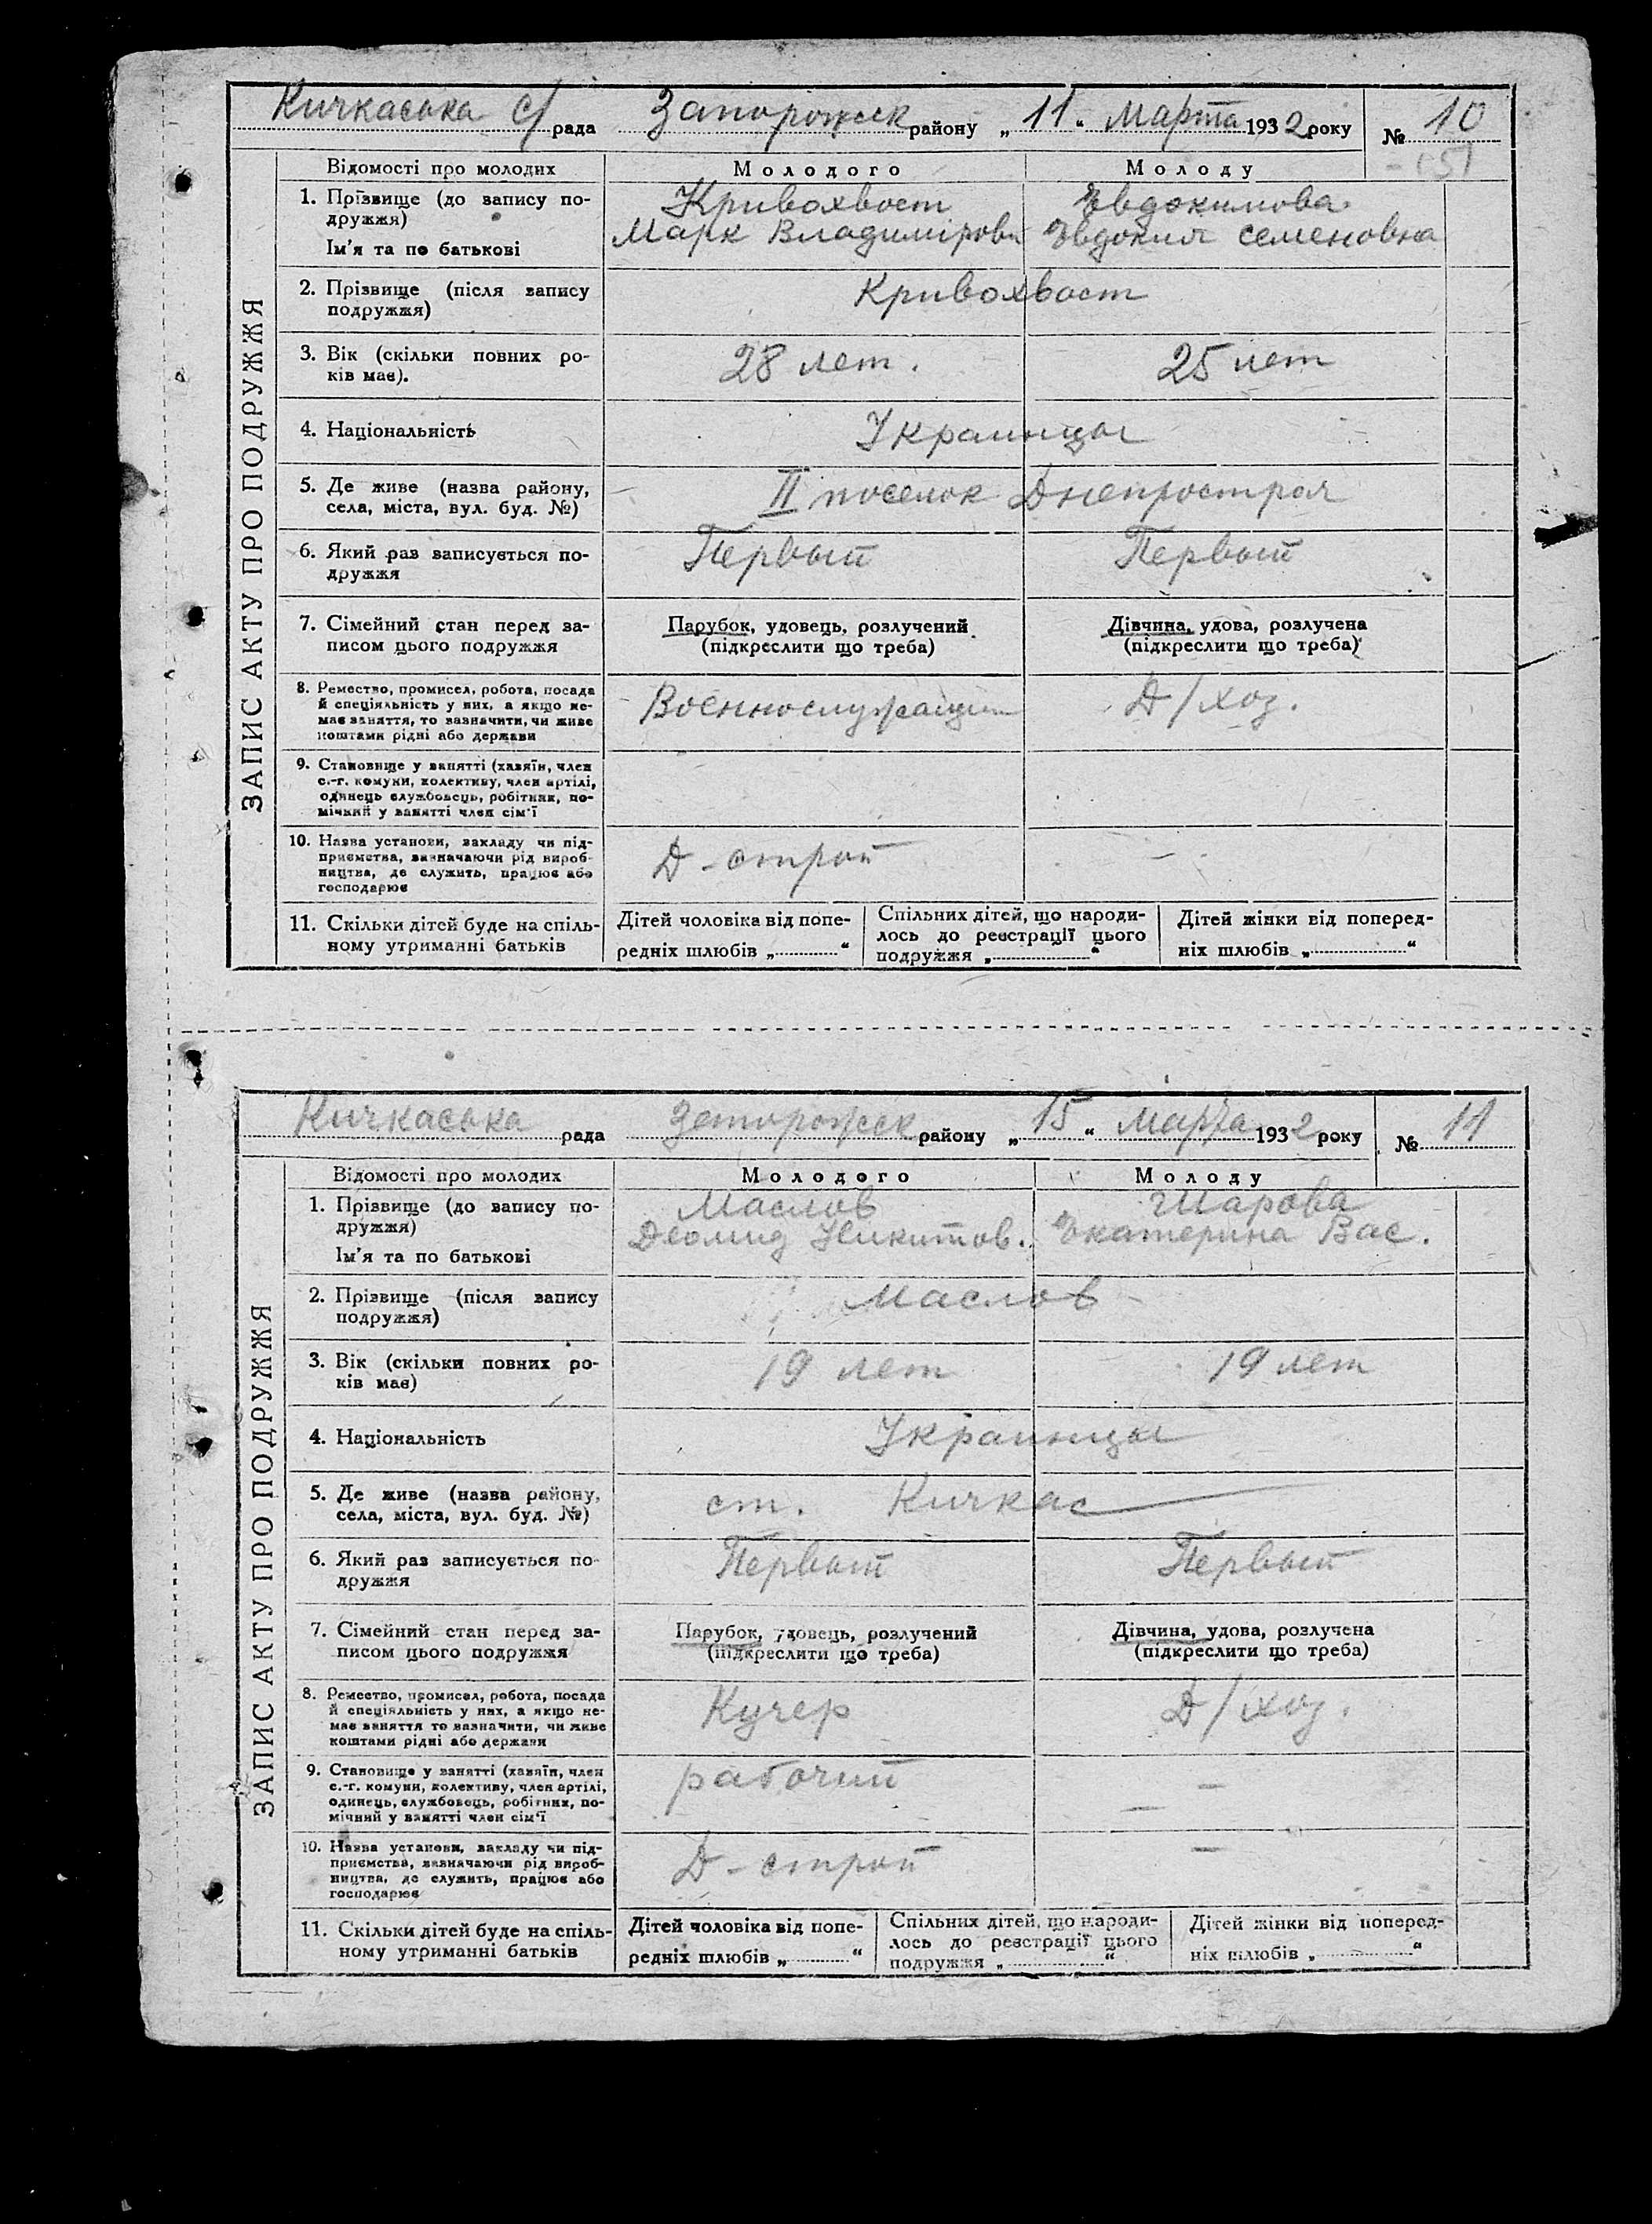 Кичкаська с/ рада Запорожск району „ 11 “ Марта 1932 року № 10
Відомості про молодих Молодого Молоду
ЗАПИС АКТУ ПРО ПОДРУЖЖЯ
1. Прізвище (до запису по- Кривохвост Евдокимова
дружжя) Марк Владимірови Евдокия Семеновна
Ім'я та по батькові
2. Прізвище (після запису Кривохвост
подружжя)
3. Вік (скільки повних ро- 28 лет. 25 лет
ків має).
4. Національність Украинцы
5. Де живе (назва району, II поселок Днепростроя
села, міста, вул. буд. №)
6. Який раз записується по- Первый Первый
дружжя
7. Сімейний стан перед за- Парубок, удовець, розлучений Дівчина, удова, розлучена
писом цього подружжя (підкреслити що треба) (підкреслити що треба)
8. Ремество, промисел, робота, посада Военнослужащий Д/хоз.
й спеціяльність у них, а якщо не-
має заняття, то зазначити, чи живе
коштами рідні або держави
9. Становище у занятті (хазяїн, член
с.-г. комуни, колективу, член артілі,
одинець службовець, робітник, по-
мічний у занятті член сім'ї
10. Назва установи, закладу чи під- Д-строй -
приємства, зазначаючи рід вироб-
ництва, де служить, працює або
господарює
11. Скільки дітей буде на спіль- Дітей чоловіка від попе- Спільних дітей, що народи- Дітей жінки від поперед-
ному утриманні батьків редніх шлюбів „ “ лось до реєстрації цього ніх шлюбів „ “
подружжя „ “
Кичкаська рада Запорожск району „ 15 “ Марта 1932 року № 11
Відомості про молодих Молодого Молоду
ЗАПИС АКТУ ПРО ПОДРУЖЖЯ
1. Прізвище (до запису по- Маслов Шарова
дружжя) Деомид Никитов. Екатерина Вас.
Ім'я та по батькові
2. Прізвище (після запису Маслов
подружжя)
3. Вік (скільки повних ро- 19 лет 19 лет
ків має)
4. Національність Украинцы
5. Де живе (назва району, ст. Кичкас
села, міста, вул. буд. №)
6. Який раз записується по- Первый Первый
дружжя
7. Сімейний стан перед за- Парубок, удовець, розлучений Дівчина, удова, розлучена
писом цього подружжя (підкреслити що треба) (підкреслити що треба)
8. Ремество, промисел, робота, посада Кучер Д/хоз.
й спеціяльність у них, а якщо не-
має заняття то зазначити, чи живе
коштами рідні або держави
9. Становище у занятті (хазяїн, член рабочий -
с.-г. комуни, колективу, член артілі,
одинець, службовець, робітник, по-
мічний у занятті член сім'ї
10. Назва установи, закладу чи під- Д-строй -
приємства, зазначаючи рід вироб-
ництва, де служить, працює або
господарює
11. Скільки дітей буде на спіль- Дітей чоловіка від попе- Спільних дітей, що народи- Дітей жінки від поперед-
ному утриманні батьків редніх шлюбів „ “ лось до реєстрації цього ніх шлюбів „ “
подружжя „ “